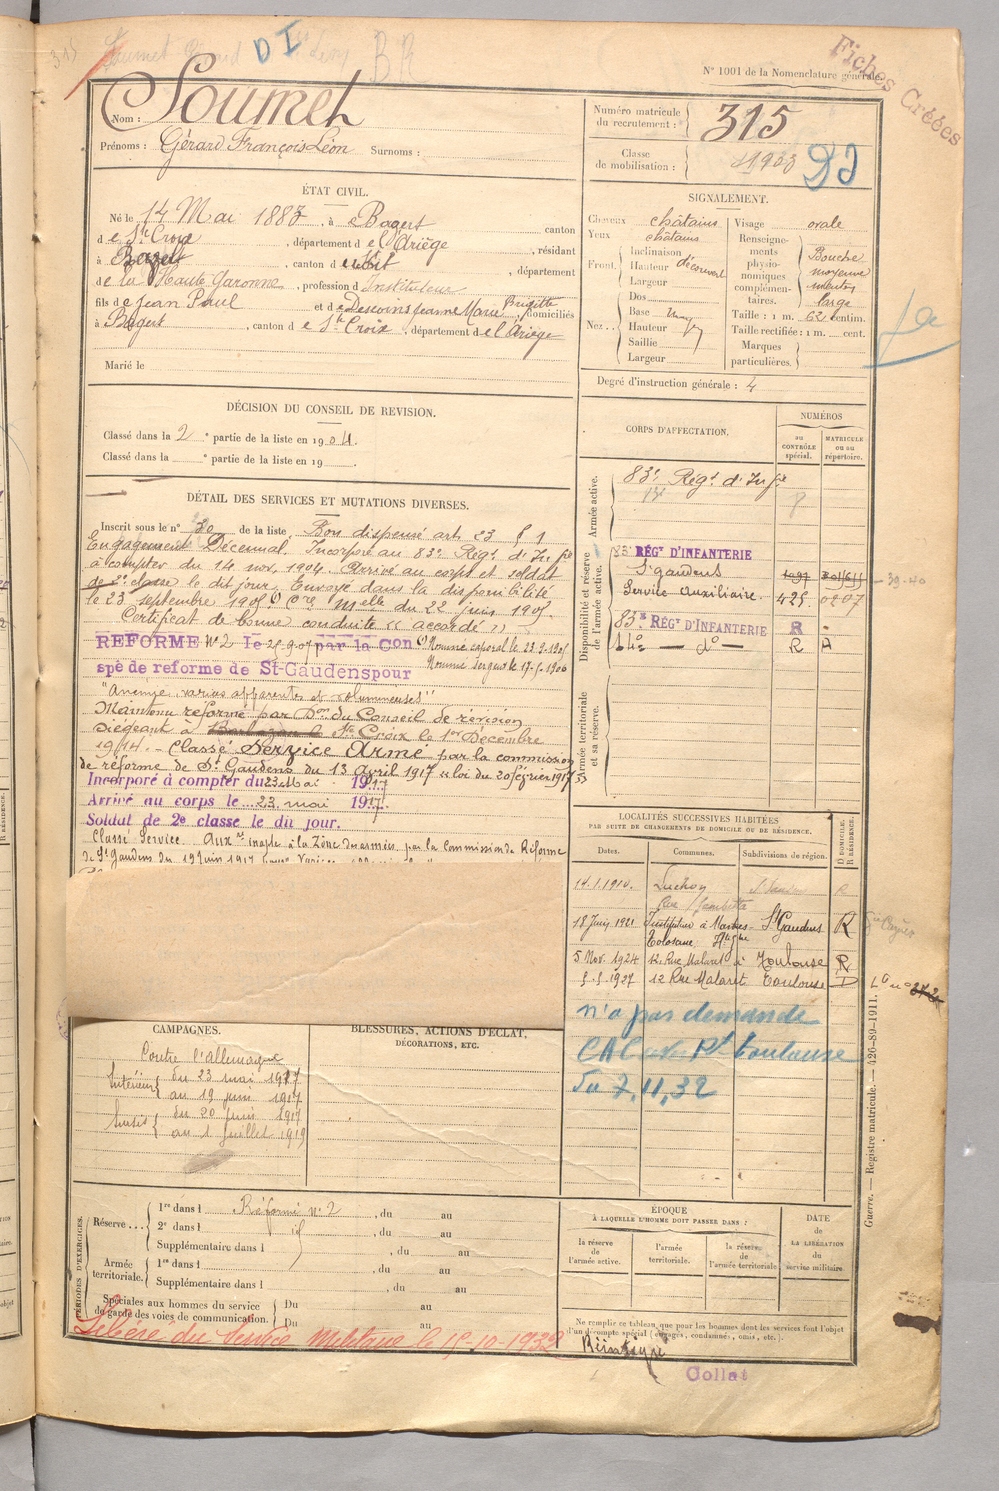 315
D I
BR
N° 1001 de la Nomenclature générale.
Fiches Créées
Nom : Soumet
Prénoms : Gérard François Léon Surnoms :
Numéro matricule du recrutement : 315
Classe de mobilisation : 1903
ÉTAT CIVIL.
Né le 14 Mai 1883, à Bagert canton
de Ste Croix, département de l'Ariège, résidant
à , canton d , département
de la Haute Garonne, profession d'Instituteur
fils de Jean Paul et de Descoins Jeanne Marie Brigitte domiciliés
à Bagert, canton de Ste Croix, département de l'Ariège
Marié le
SIGNALEMENT.
Cheveux châtains
Yeux châtains
Front. Inclinaison
Hauteur découvert
Largeur
Nez . . Dos
Base
Hauteur
Saillie
Largeur
Visage orale
Renseignements physionomiques complémentaires.
Bouche moyenne
menton large
Taille : 1 m. 62 centim.
Taille rectifiée : 1 m. cent.
Marques particulières.
Degré d'instruction générale : 4
DÉCISION DU CONSEIL DE REVISION.
Classé dans la 2e partie de la liste en 1904.
Classé dans la e partie de la liste en 19 .
DÉTAIL DES SERVICES ET MUTATIONS DIVERSES.
Inscrit sous le n° 30 de la liste Bon dispensé art. 23 § 1
Engagement Décennal. Incorporé au 83e Régt d'Infie
à compter du 14 nov. 1904. Arrivé au corps et soldat
de 2e classe le dit jour. Envoyé dans la disponibilité
le 23 septembre 1905 Cre Mlle du 22 juin 1905
Certificat de bonne conduite « accordé »
Nommé caporal le 23-9-1905
REFORME N° 2 le 25-9-07 par la Con
Nommé sergent le 17-5-1906
spé de reforme de St-Gaudens pour
"Anémie, varices apparentes et volumineuses"
Maintenu réformé par Don du Conseil de révision
siégeant à Ste Croix le 1er Décembre
1914. - Classé Service Armé par la commission
de réforme de St Gaudens du 13 Avril 1917 « loi du 20 février 1917 »
Incorporé à compter du 23 Mai 1917
Arrivé au corps le 23 mai 1917
Soldat de 2e classe le dit jour.
Classé Service Auxre inapte à la Zône des armées par la Commission de Réforme
de St Gaudens du 19 Juin 1917
CORPS D'AFFECTATION.
NUMÉROS
au CONTRÔLE spécial.
MATRICULE ou au répertoire.
Armée active.
83e Régt d'Infie
Disponibilité et réserve de l'armée active.
83e RÉGt D'INFANTERIE
St gaudens
1097
39-40
Service Auxiliaire. 425 0207
83e RÉGt D'INFANTERIE R -
— do — R A
Armée territoriale et sa réserve.
LOCALITÉS SUCCESSIVES HABITÉES
PAR SUITE DE CHANGEMENTS DE DOMICILE OU DE RÉSIDENCE.
D DOMICILE. R RÉSIDENCE.
Dates. Communes. Subdivisions de région.
14.1.1910. Luchon R
Rue Gambetta
18 Juin 1921 Instituteur à Martres- St Gaudens R
Tolosane Hte Gne
5 Nov. 1924 12, Rue Malaret à Toulouse R
5-5-1927 12 Rue Malaret Toulouse D
n'a pas demandé
CAC Toulouse
du 7, 11, 32
CAMPAGNES.
Contre l'Allemagne
Intérieur du 23 mai 1917
au 19 juin 1917
Sursis du 20 juin 1917
au 1 Juillet 1919
BLESSURES, ACTIONS D'ÉCLAT,
DÉCORATIONS, ETC.
PÉRIODES D'EXERCICES.
Réserve . . . 1re dans l Réformé n° 2, du au
2e dans l , du au
Supplémentaire dans l , du au
Armée territoriale. 1re dans l , du au
Supplémentaire dans l , du au
Spéciales aux hommes du service de garde des voies de communication. Du au
Du au
Libéré du Service Militaire le 15-10-1932
ÉPOQUE
À LAQUELLE L'HOMME DOIT PASSER DANS :
la réserve de l'armée active.
l'armée territoriale.
la réserve de l'armée territoriale
DATE DE LA LIBÉRATION du service militaire.
Ne remplir ce tableau que pour les hommes dont les services font l'objet
d'un décompte spécial (engagés, condamnés, omis, etc.).
Collat
Guerre. — Registre matricule. — 426-89-1911.